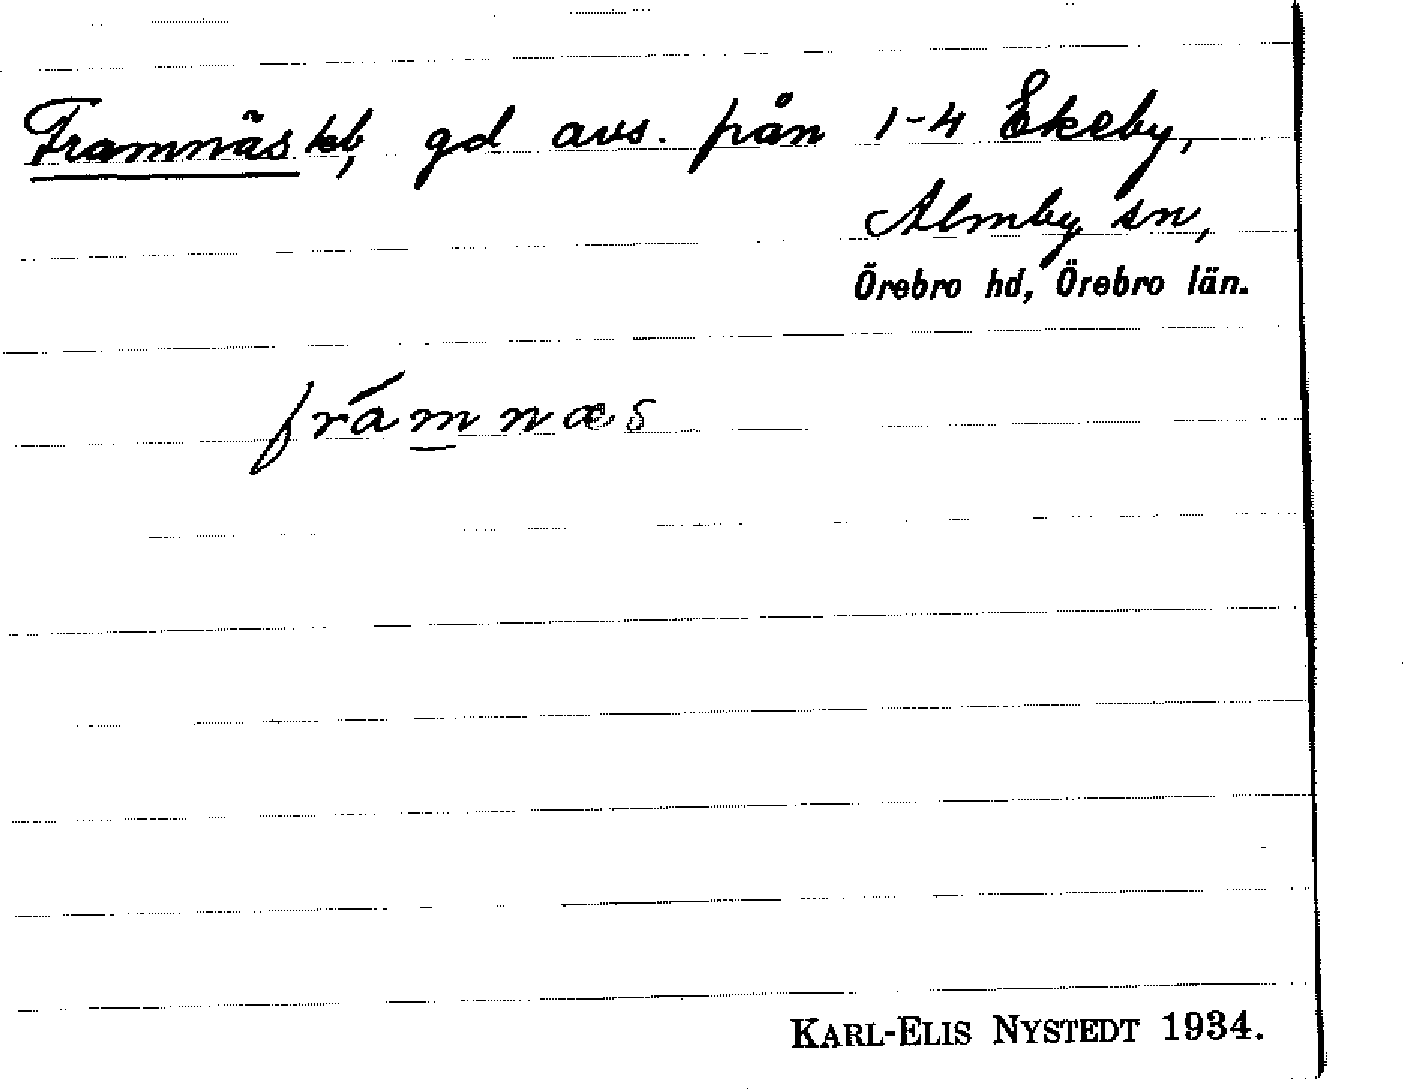 Framnäs kb, gd avs. från 1-4 Ekeby,
Almby sn,
Örebro hd, Örebro län.
framnæs
KARL-ELIS NYSTEDT 1934.